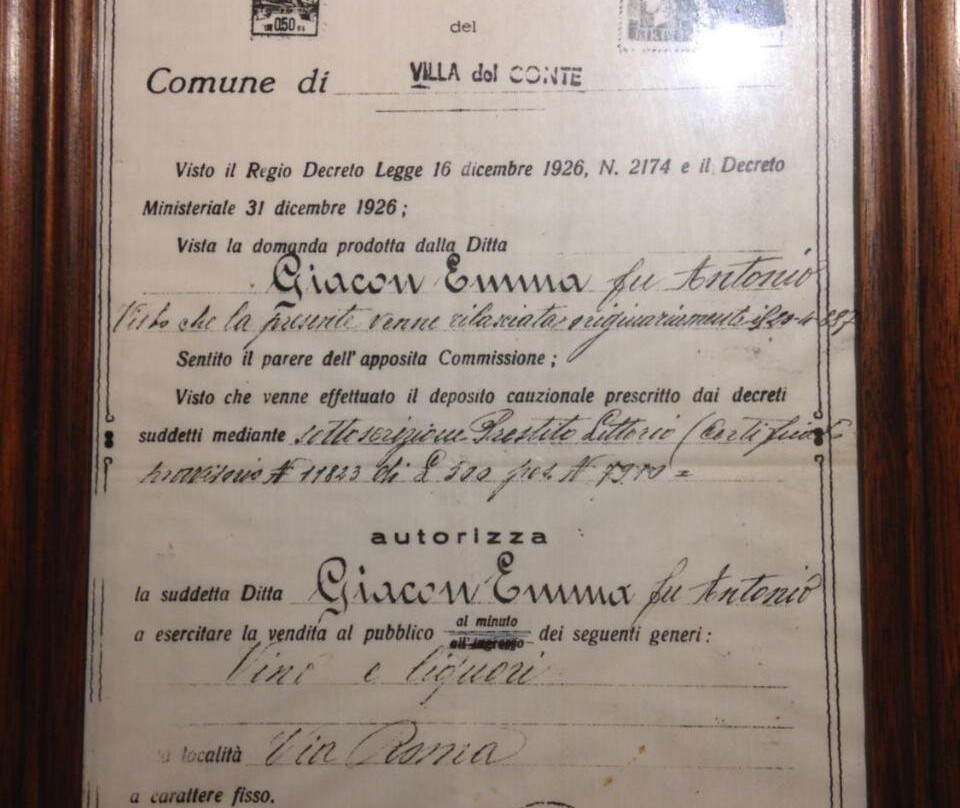 0.50
del
Comune di VILLA del CONTE
Visto il Regio Decreto Legge 16 dicembre 1926, N. 2174 e il Decreto
Ministeriale 31 dicembre 1926;
Vista la domanda prodotta dalla Ditta
Giacon Emma fu Antonio
Visto che la presente venne rilasciata originariamente il
Sentito il parere dell'apposita Commissione;
Visto che venne effettuato il deposito cauzionale prescritto dai decreti
suddetti mediante sottoscrizione Prestito Littorio (Certificato
provvisorio N 11823 di £ 500 pol. N
autorizza
la suddetta Ditta Giacon Emma fu Antonio
a esercitare la vendita al pubblico al minuto all'ingrosso dei seguenti generi:
Vini e liquori
località Via Roma
a carattere fisso.